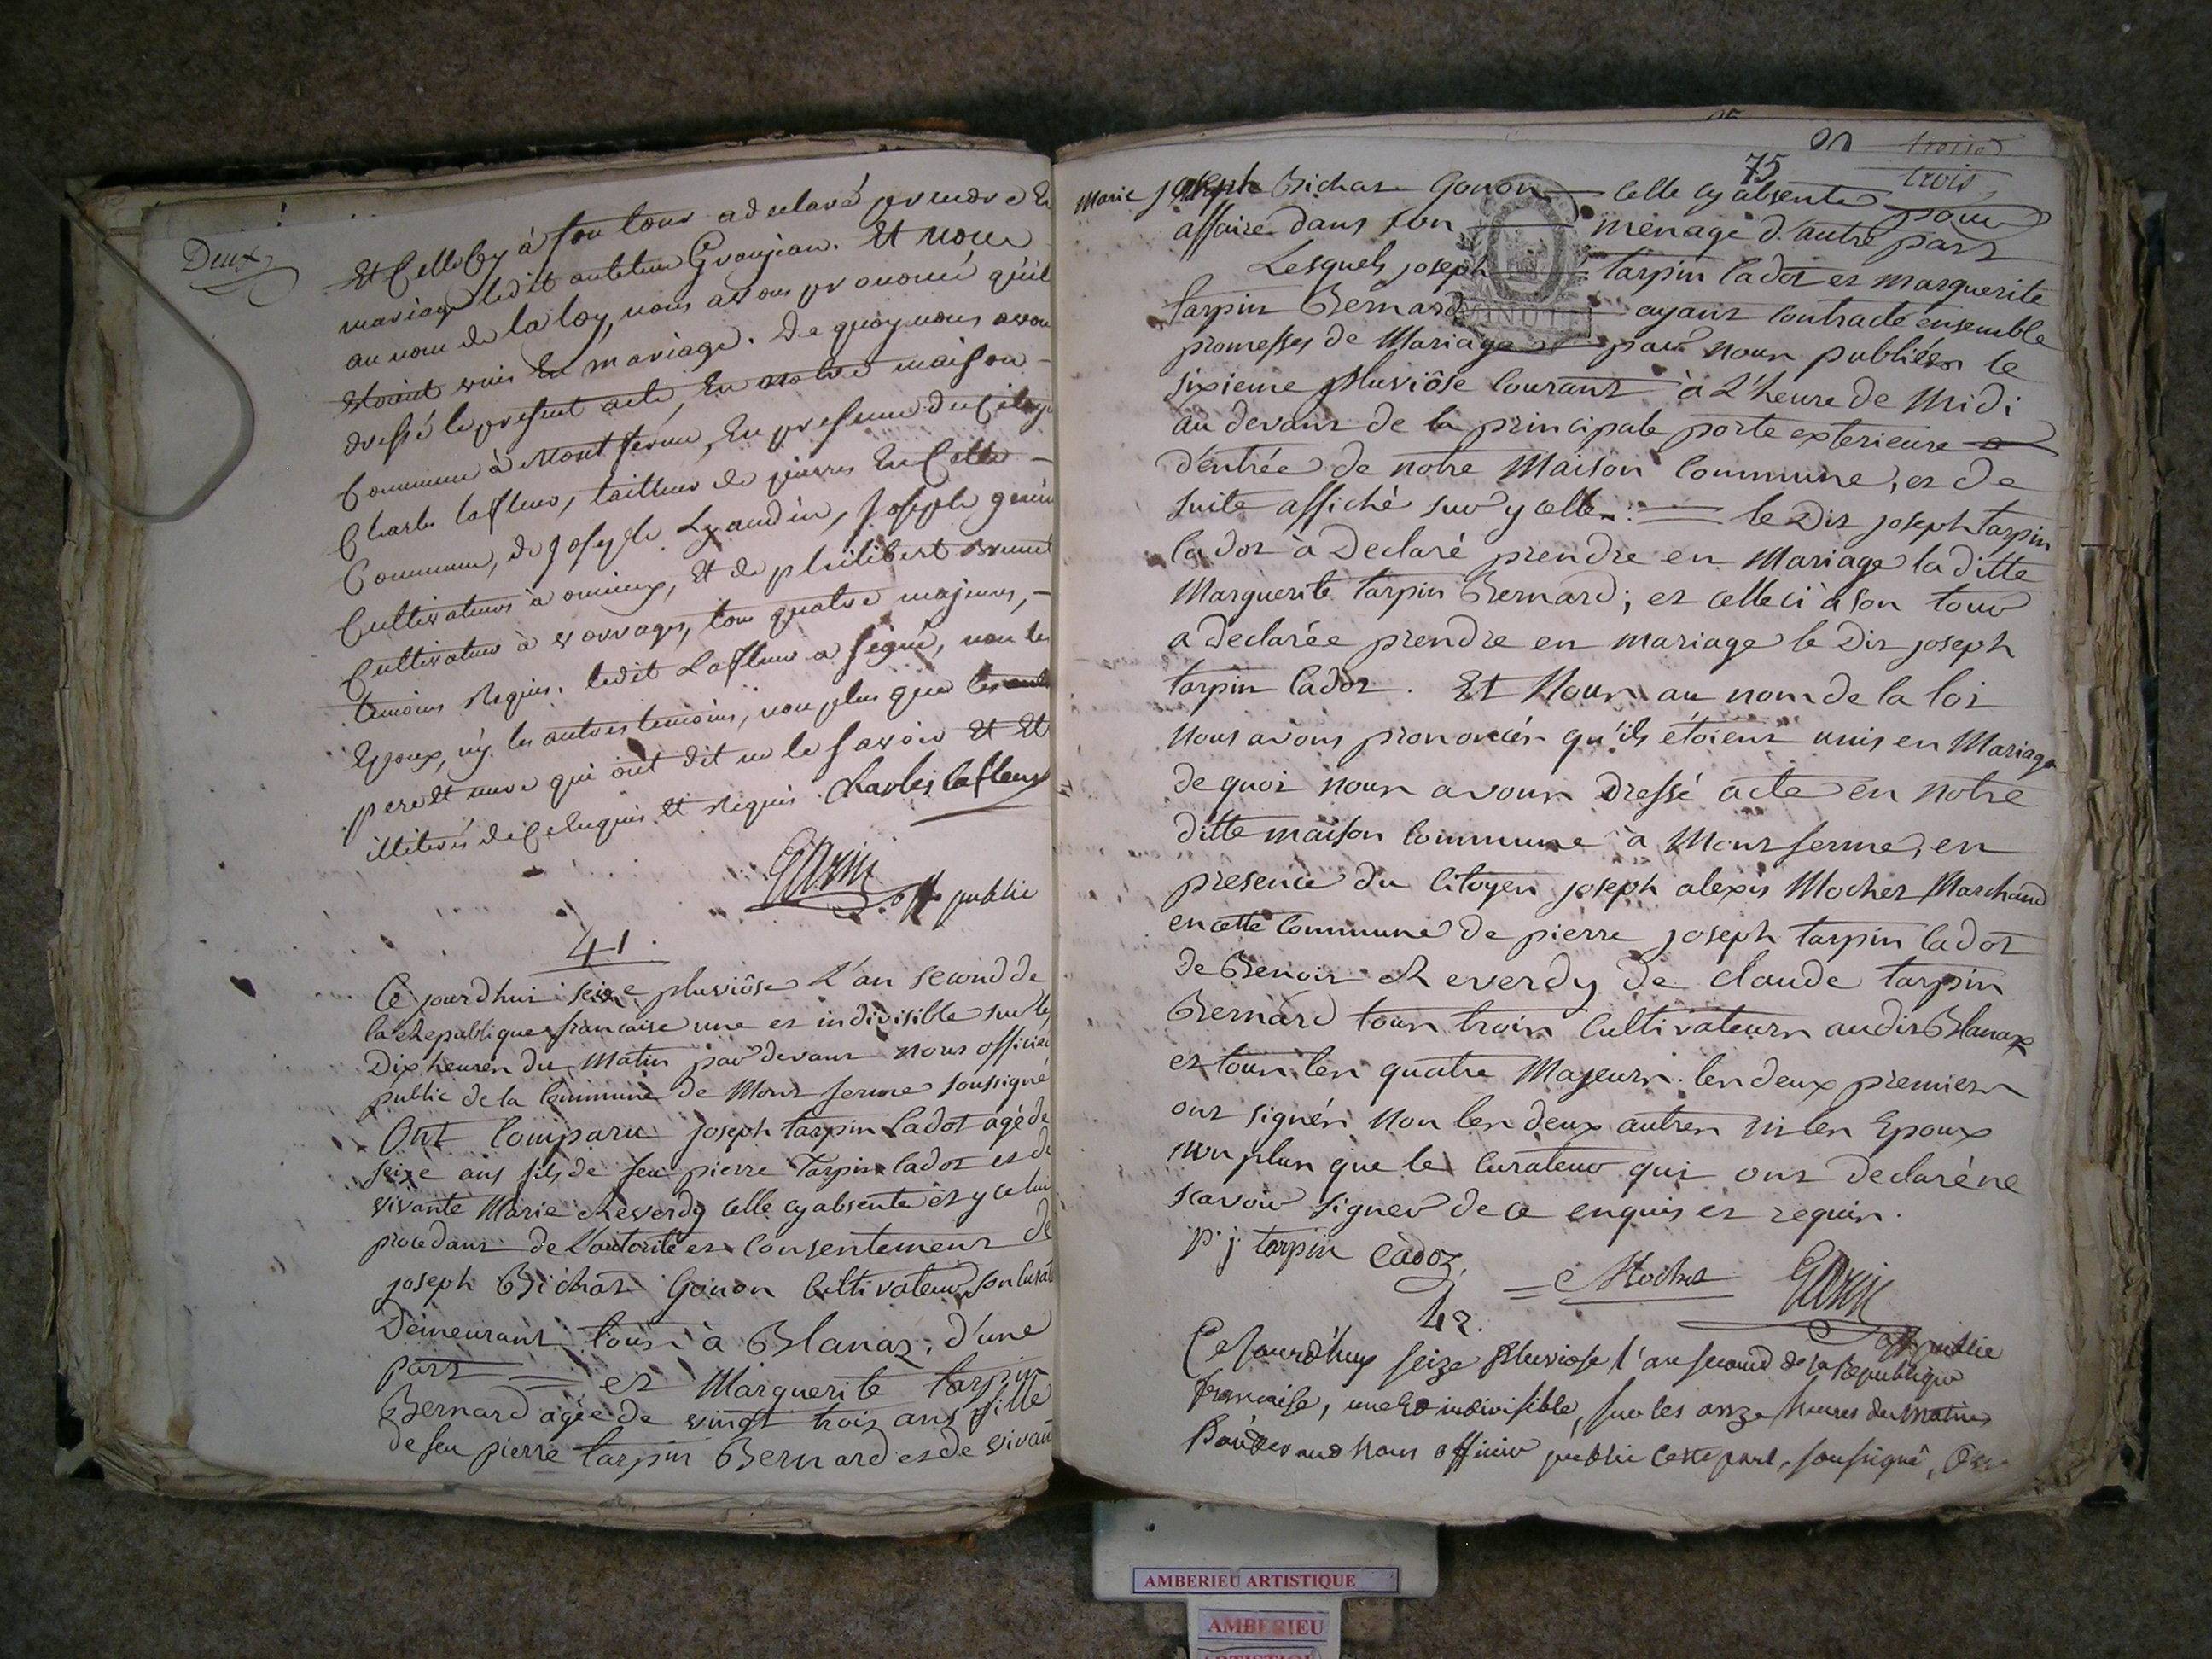 Deux
Et Celle Cy à son tour a déclaré prendre En
mariage ledit antelme Granjean. Et nous
au nom de la loy, nous avons prononcé qu'il
étoient unis En mariage. De quoy nous avons
dressé le présent acte, En notre maison
Commune à Montferme, En presence du Citoy
Charles lafleur, tailleur de pierres En Cette
Commune, de Joseph , Joseph
Cultivateurs à omieux, Et de philibert
Cultivateur à , tous quatre majeurs,
temoins Requis. ledit Lafleur a signé, non les
Epoux, ny les autres temoins, non plus que les
pere Et mere qui ont dit ne le savoir Et Et
illiterés de Ce Enquis Et Requis. Charles lafleur
off public
41
Ce jourdhui seize pluviôse L'an second de
la Republique francaise une et indivisible sur les
Dix heures du Matin par devant nous officier
public de la Commune de Mont ferme soussigné
Ont Comparu joseph tarpin Cadot agé de
seize ans fils de feu pierre Tarpin Cadot et de
vivante Marie Reverdy celle cy absente et y celui
procedant de L'autorité et Consentement de
joseph Bichat Gonon Cultivateur son Curat
Demeurant tous à Blanaz, d'une
part = et Marguerite tarpin
Bernard agée de vingt trois ans fille
de feu pierre tarpin Bernard et de vivan
75
trois
trois
Marie joseph Bichat Gonon celle cy absente pour
affaire dans son ménage d'autre part
MINUTE
Lesquels joseph tarpin Cadot et marguerite
tarpin Bernard ayant Contracté ensemble
promesses de Mariage par Nous publiées le
sixieme pluviôse Courant à L'heure de Midi
au devant de la principale porte exterieure
d'entrée de notre Maison Commune, et de
suite affiché sur y celle. = le Dit joseph tarpin
Cadot à Declaré prendre en Mariage la ditte
Marguerite tarpin Bernard; et celle ci à son tour
a declarée prendre en mariage le Dit joseph
tarpin Cadot. Et Nous au nom de la loi
Nous avons prononcés qu'ils étoient unis en Mariage
de quoi nous avons Dressé acte en notre
ditte maison Commune à Mont ferme, en
presence du Citoyen joseph alexis Mochet Marchand
en cette Commune de pierre joseph tarpin Cadot
de Benoit Reverdy de claude tarpin
Bernard tous trois Cultivateurs audit Blanaz
et tous les quatre Majeurs. les deux premiers
ont signés Non les deux autres ni les Epoux
non plus que le Curateur qui ont Declaré ne
scavoir signer de ce enquis et requis.
p. j. tarpin Cadoz.
= Mochet
off public
42.
Ce Jourd'huy seize Pluviose l'an second de la Republique
francaise, une Et indivisible, sur les onze heures du matin
Pardevant Nous officier public Cette part, soussigné,